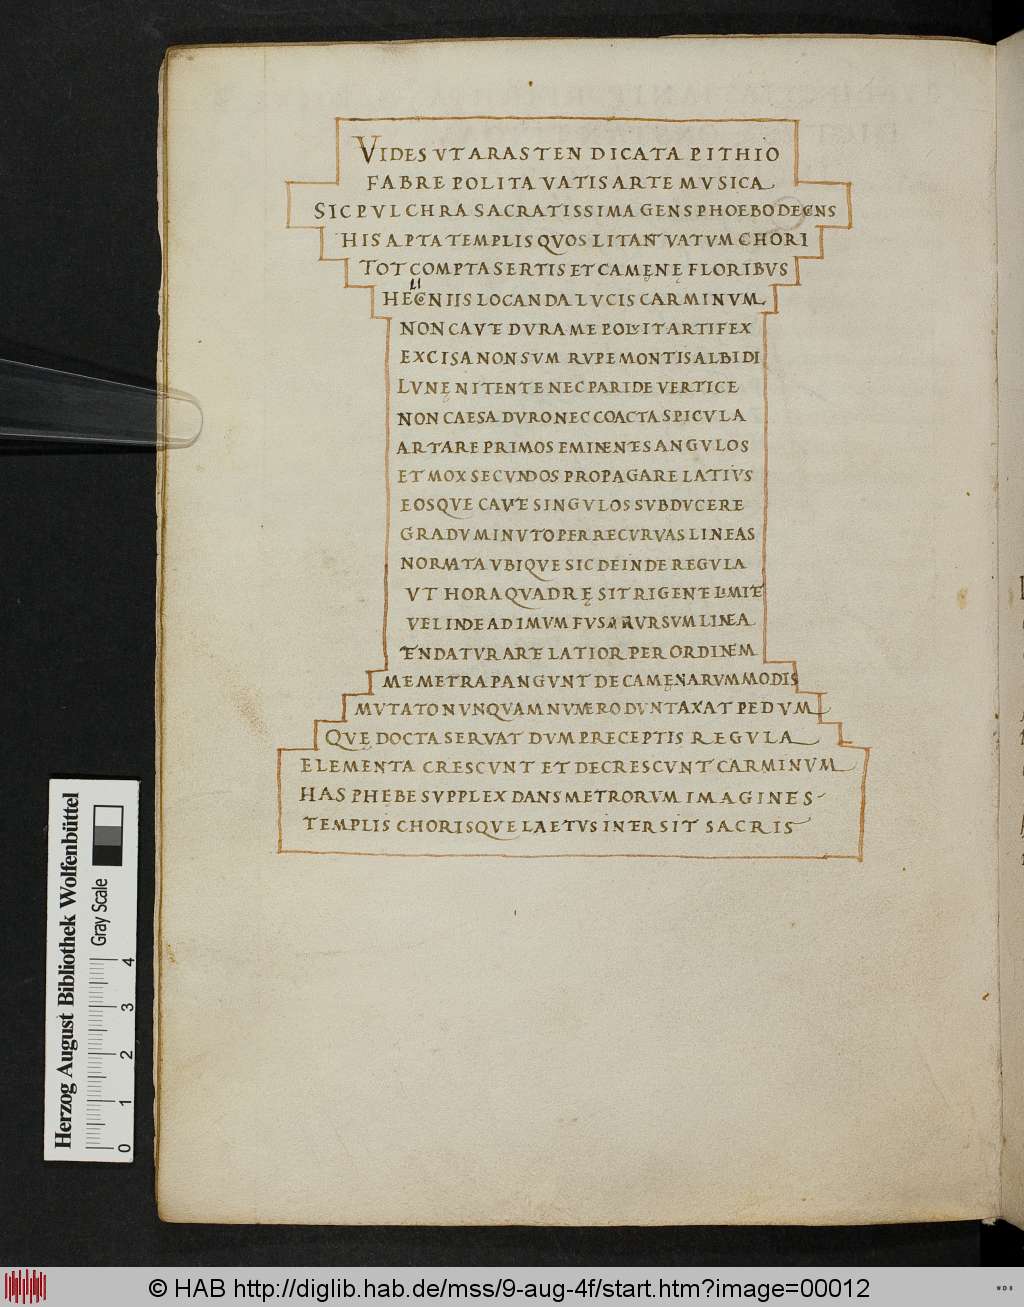 VIDES VT ARA STEN DICATA PITHIO
FABRE POLITA VATIS ARTE MVSICA
SIC PVLCHRA SACRATISSIMA GENS PHOEBO DECENS
HIS APTA TEMPLIS QVOS LITANT VATVM CHORI
TOT COMPTA SERTIS ET CAMĘNĘ FLORIBVS
LOCANDA LVCIS CARMINVM
NON CAVTE DVRA ME POLIVIT ARTIFEX
EXCISA NON SVM RVPE MONTIS ALBIDI
LVNĘ NITENTE NEC PARI DE VERTICE
NON CAESA DVRO NEC COACTA SPICVLA
ARTARE PRIMOS EMINENTES ANGVLOS
ET MOX SECVNDOS PROPAGARE LATIVS
EOSQVE CAVTE SINGVLOS SVBDVCERE
GRADV MINVTO PER RECVRVAS LINEAS
NORMATA VBIQVE SIC DEINDE REGVLA
VT HORA QVADRĘ SIT RIGENTE LIMITE
VEL INDE AD IMVM FVSA RVRSVM LINEA
TENDATVR ARTE LATIOR PER ORDINEM
ME METRA PANGVNT DE CAMĘNARVM MODIS
MVTATO NVNQVAM NVMERO DVNTAXAT PEDVM
QVĘ DOCTA SERVAT DVM PRECEPTIS REGVLA
ELEMENTA CRESCVNT ET DECRESCVNT CARMINVM
HAS PHĘBE SVPPLEX DANS METRORVM IMAGINES
TEMPLIS CHORISQVE LAETVS INTERSIT SACRIS
Herzog August Bibliothek Wolfenbüttel
Gray Scale
0 1 2 3 4
© HAB http://diglib.hab.de/mss/9-aug-4f/start.htm?image=00012